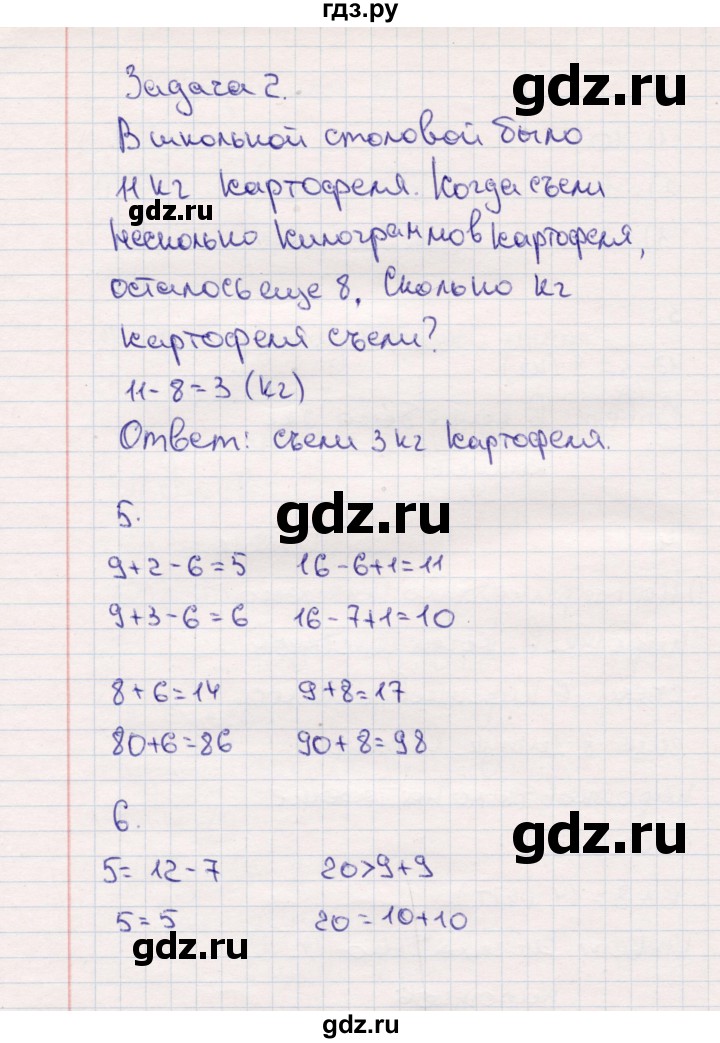 гдз.ру
Задача 2.
gdz.ru
В школьной столовой было
11 кг картофеля. Когда съели
gdz.ru
несколько килограммов картофеля,
осталось еще 8. Сколько кг
картофеля съели?
11 - 8 = 3 (кг)
Ответ: съели 3 кг картофеля.
gdz.ru
5.
9 + 2 - 6 = 5 16 - 6 + 1 = 11
9 + 3 - 6 = 6 16 - 7 + 1 = 10
8 + 6 = 14 9 + 8 = 17
80 + 6 = 86 90 + 8 = 98
6.
gdz.ru
5 = 12 - 7 20 > 9 + 9
5 = 5 20 = 10 + 10
gdz.ru
gdz.ru